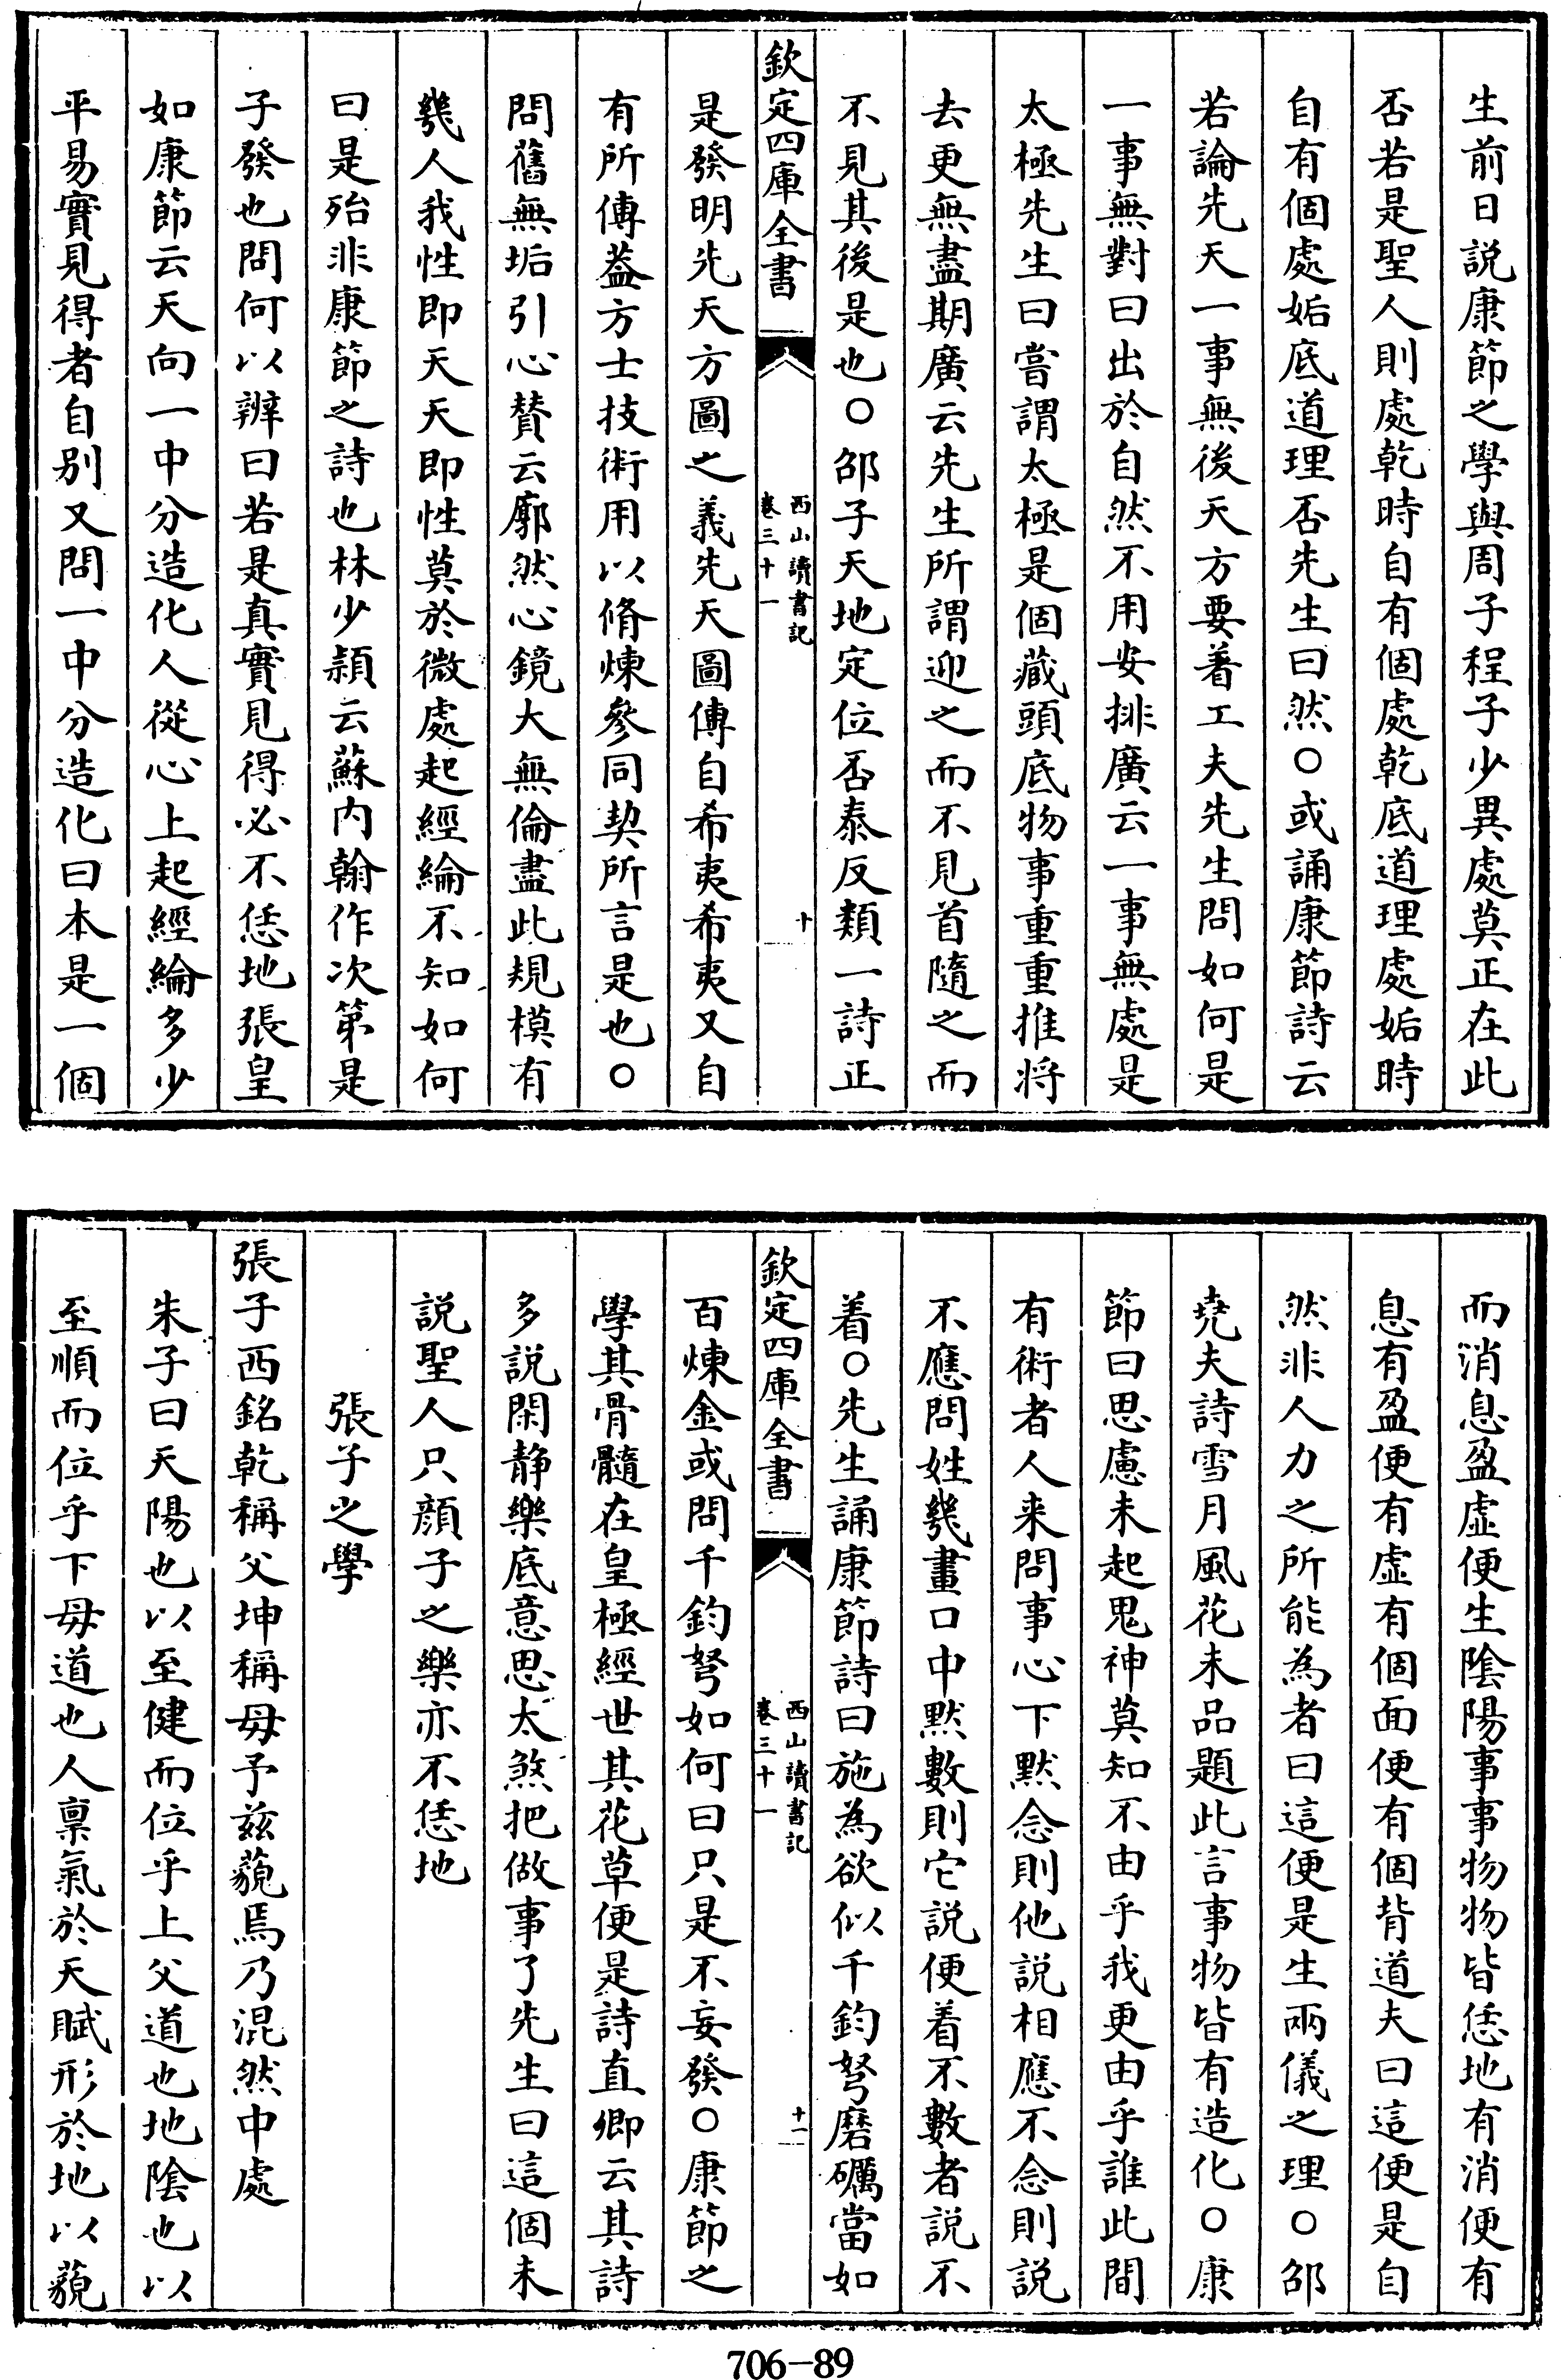 生前日説康節之學與周子程子少異處莫正在此
否若是聖人則處乾時自有個處乾底道理處姤時
自有個處姤底道理否先生曰然○或誦康節詩云
若論先天一事無後天方要著工夫先生問如何是
一事無對曰出於自然不用安排廣云一事無處是
太極先生曰嘗謂太極是個藏頭底物事重重推将
去更無盡期廣云先生所謂迎之而不見首隨之而
不見其後是也○邵子天地定位否泰反類一詩正
欽定四庫全書
西山讀書記
卷三十一
十
是發明先天方圖之義先天圖傳自希夷希夷又自
有所傳葢方士技術用以脩煉參同契所言是也○
問舊無垢引心賛云廓然心鏡大無倫盡此規模有
幾人我性即天天即性莫於微處起經綸不知如何
曰是殆非康節之詩也林少穎云蘇内翰作次第是
子發也問何以辨曰若是真實見得必不恁地張皇
如康節云天向一中分造化人從心上起經綸多少
平易實見得者自别又問一中分造化曰本是一個
而消息盈虚便生陰陽事事物物皆恁地有消便有
息有盈便有虚有個面便有個背道夫曰這便是自
然非人力之所能為者曰這便是生兩儀之理○邵
堯夫詩雪月風花未品題此言事物皆有造化○康
節曰思慮未起鬼神莫知不由乎我更由乎誰此間
有術者人来問事心下默念則他説相應不念則説
不應問姓幾畫口中默數則它説便着不數者説不
着○先生誦康節詩曰施為欲似千鈞弩磨礪當如
欽定四庫全書
西山讀書記
卷三十一
十一
百煉金或問千鈞弩如何曰只是不妄發○康節之
學其骨髓在皇極經世其花草便是詩直卿云其詩
多説閑静樂底意思太煞把做事了先生曰這個未
説聖人只顔子之樂亦不恁地
張子之學
張子西銘乾稱父坤稱母予兹藐焉乃混然中處
朱子曰天陽也以至健而位乎上父道也地陰也以
至順而位乎下母道也人禀氣於天賦形於地以藐
706-89